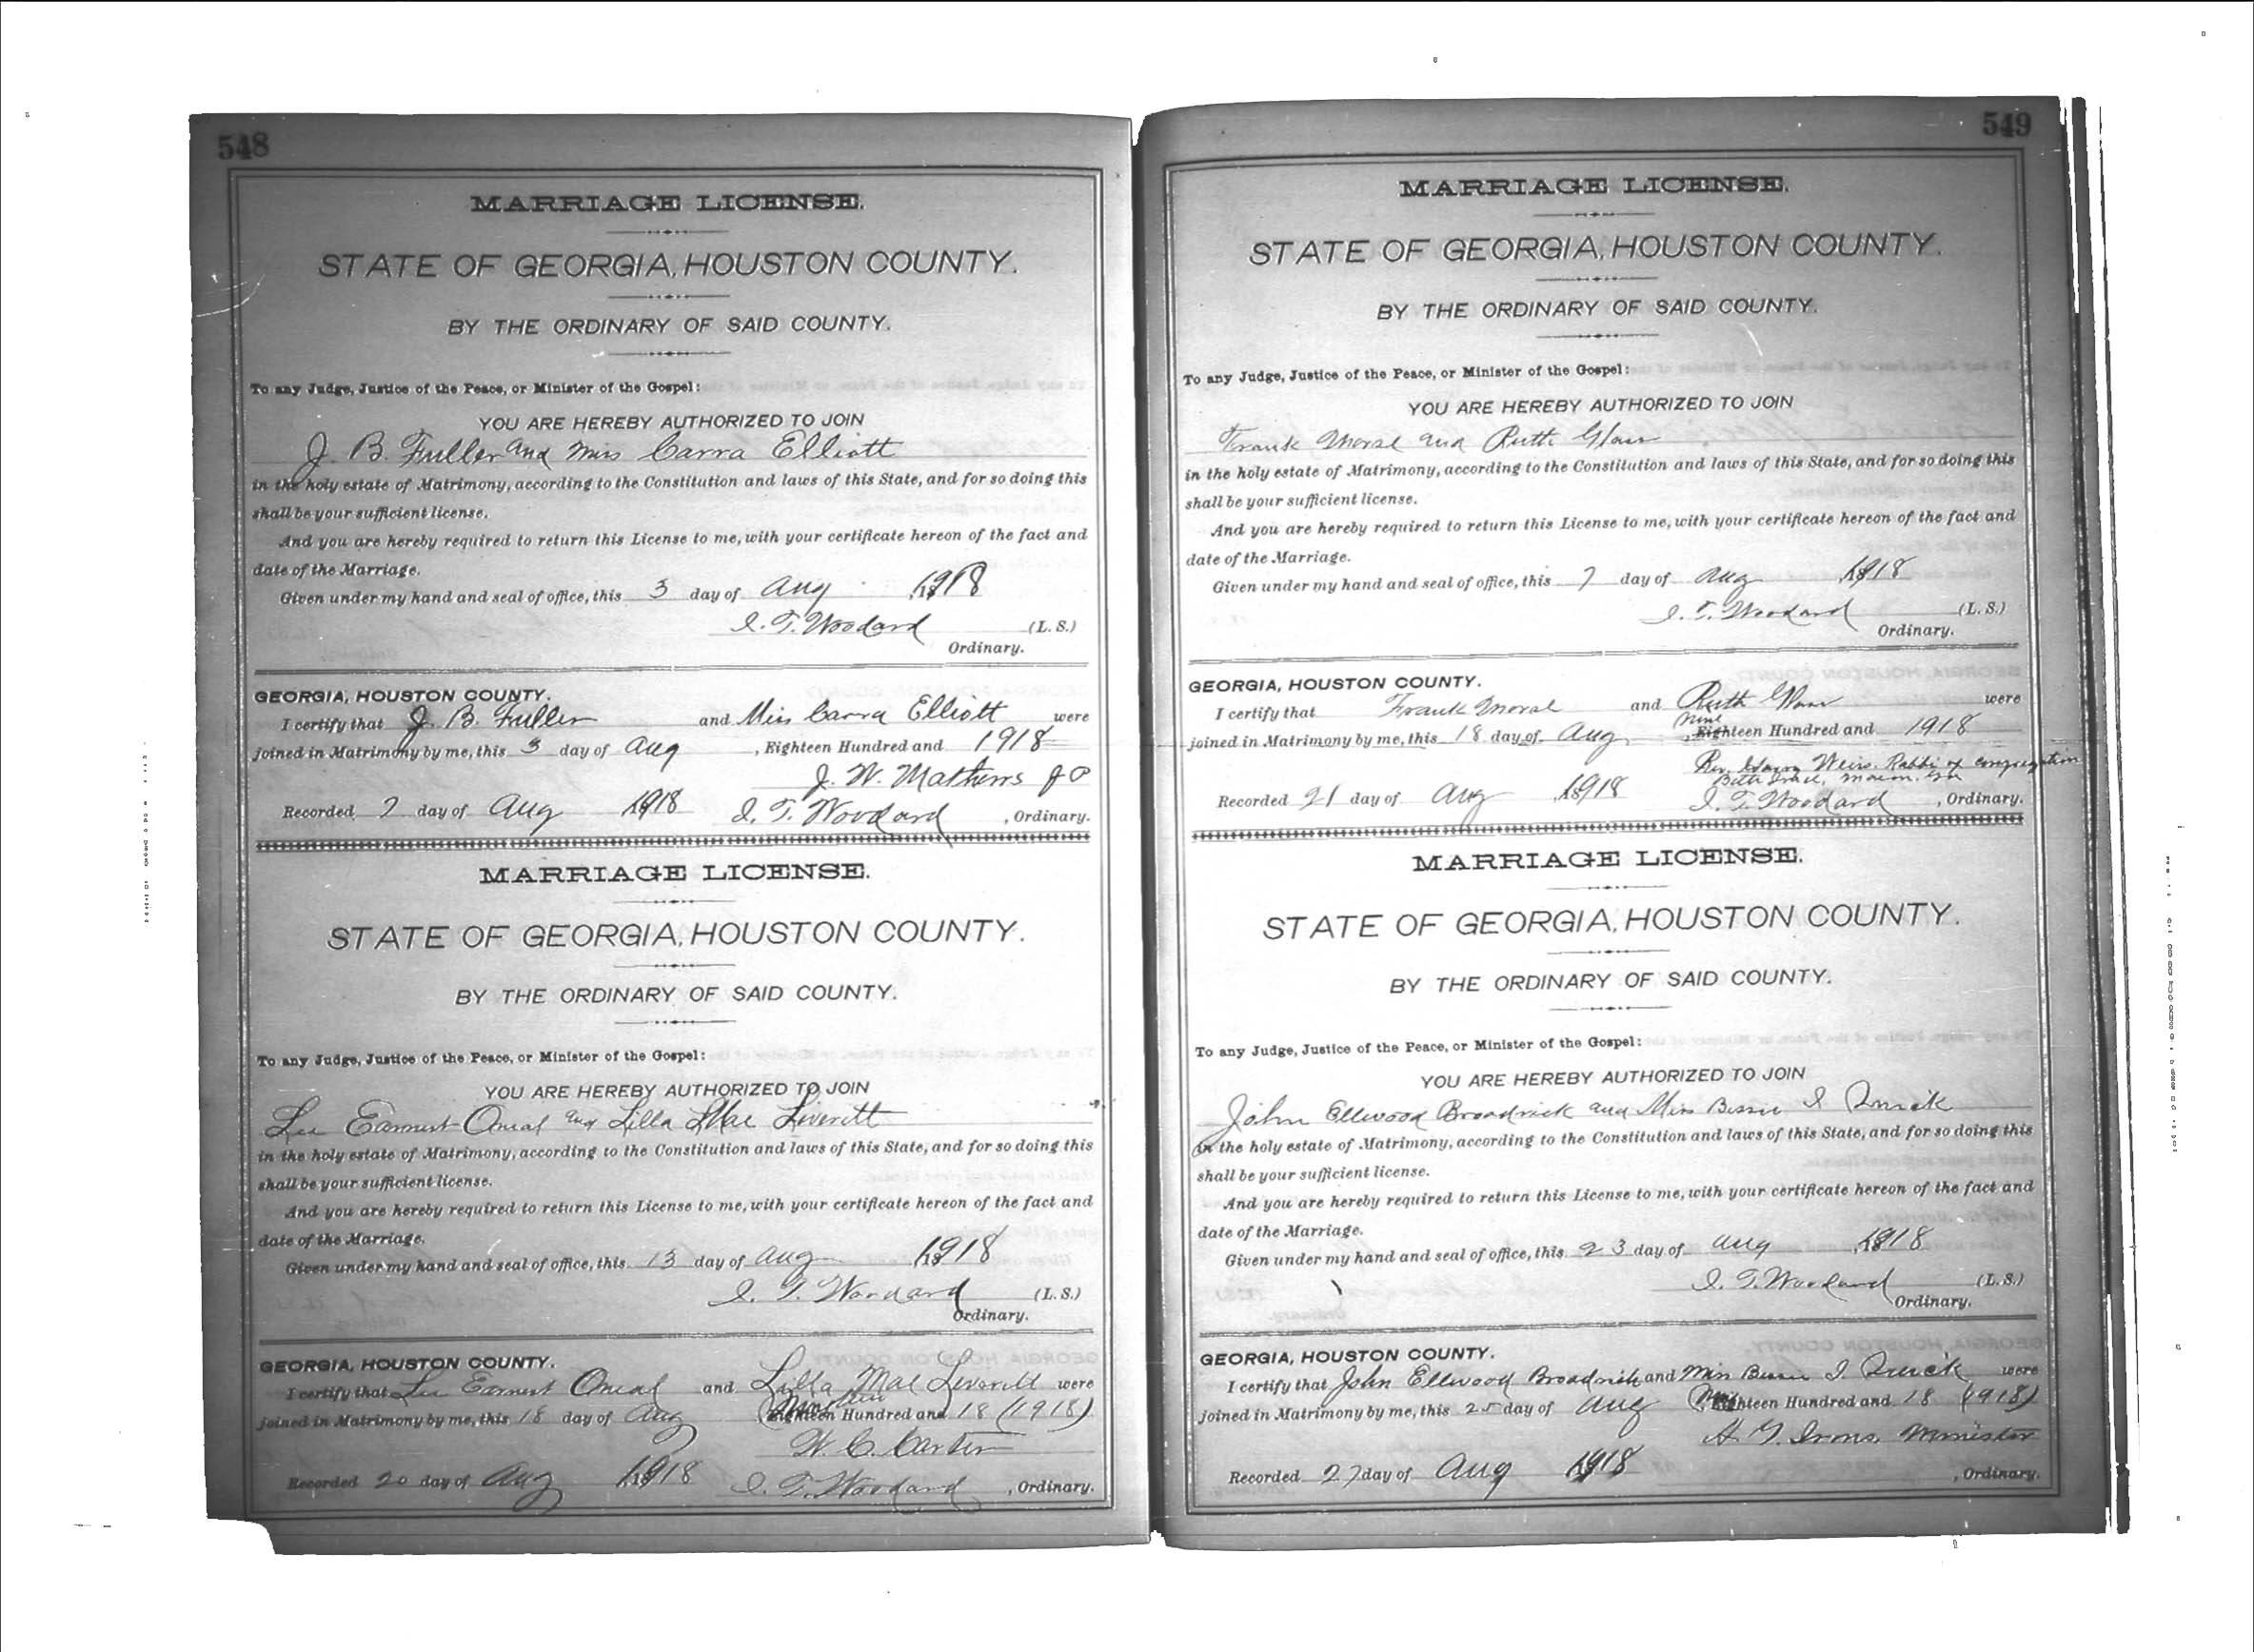 548
MARRIAGE LICENSE.
STATE OF GEORGIA, HOUSTON COUNTY.
BY THE ORDINARY OF SAID COUNTY.
To any Judge, Justice of the Peace, or Minister of the Gospel:
YOU ARE HEREBY AUTHORIZED TO JOIN
J. B. Fuller and Miss Carra Elliott
in the holy estate of Matrimony, according to the Constitution and laws of this State, and for so doing this
shall be your sufficient license.
And you are hereby required to return this License to me, with your certificate hereon of the fact and
date of the Marriage.
Given under my hand and seal of office, this 3 day of Aug 1918
I. T. Woodard (L. S.)
Ordinary.
GEORGIA, HOUSTON COUNTY.
I certify that J. B. Fuller and Miss Carra Elliott were
joined in Matrimony by me, this 3 day of Aug, Eighteen Hundred and 1918
J. W. Mathews J P
Recorded 7 day of Aug 1918 I. T. Woodard, Ordinary.
MARRIAGE LICENSE.
STATE OF GEORGIA, HOUSTON COUNTY.
BY THE ORDINARY OF SAID COUNTY.
To any Judge, Justice of the Peace, or Minister of the Gospel:
YOU ARE HEREBY AUTHORIZED TO JOIN
Lee Earnest Oneal and Lilla Mae Leverett
in the holy estate of Matrimony, according to the Constitution and laws of this State, and for so doing this
shall be your sufficient license.
And you are hereby required to return this License to me, with your certificate hereon of the fact and
date of the Marriage.
Given under my hand and seal of office, this 13 day of Aug 1918
I. T. Woodard (L. S.)
Ordinary.
GEORGIA, HOUSTON COUNTY.
I certify that Lee Earnest Oneal and Lilla Mae Leverett were
joined in Matrimony by me, this 18 day of Aug Hundred and 18 (1918)
W. C. Carter
Recorded 20 day of Aug 1918 I. T. Woodard, Ordinary.
549
MARRIAGE LICENSE.
STATE OF GEORGIA, HOUSTON COUNTY.
BY THE ORDINARY OF SAID COUNTY.
To any Judge, Justice of the Peace, or Minister of the Gospel:
YOU ARE HEREBY AUTHORIZED TO JOIN
Frank Moral and Ruth
in the holy estate of Matrimony, according to the Constitution and laws of this State, and for so doing this
shall be your sufficient license.
And you are hereby required to return this License to me, with your certificate hereon of the fact and
date of the Marriage.
Given under my hand and seal of office, this 7 day of Aug 1918
I. T. Woodard (L. S.)
Ordinary.
GEORGIA, HOUSTON COUNTY.
I certify that Frank Moral and Ruth were
nine
joined in Matrimony by me, this 18 day of Aug, Eighteen Hundred and 1918
Rev. Weiss. Rabbi of congregation
Beth Israel, Macon. Ga
Recorded 21 day of Aug 1918 I. T. Woodard, Ordinary.
MARRIAGE LICENSE.
STATE OF GEORGIA, HOUSTON COUNTY.
BY THE ORDINARY OF SAID COUNTY.
To any Judge, Justice of the Peace, or Minister of the Gospel:
YOU ARE HEREBY AUTHORIZED TO JOIN
John Ellwood Broadrick and Miss Bessie I
in the holy estate of Matrimony, according to the Constitution and laws of this State, and for so doing this
shall be your sufficient license.
And you are hereby required to return this License to me, with your certificate hereon of the fact and
date of the Marriage.
Given under my hand and seal of office, this 23 day of Aug 1918
I. T. Woodard (L. S.)
Ordinary.
GEORGIA, HOUSTON COUNTY.
I certify that John Ellwood Broadrick and Miss Bessie I were
joined in Matrimony by me, this 25 day of Aug Hundred and 18 (1918)
Irons, Minister
Recorded 27 day of Aug 1918, Ordinary.